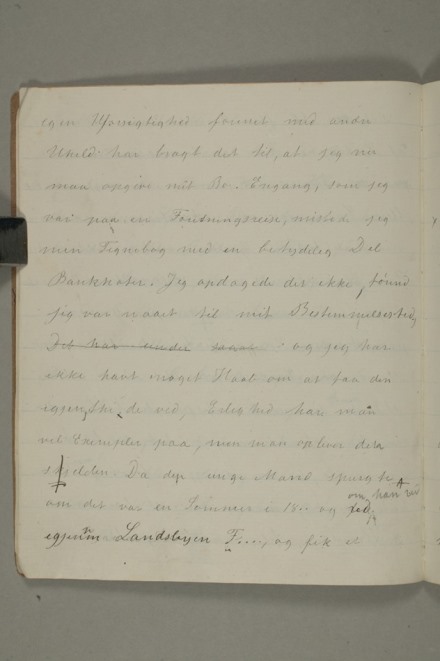 egen Uforsigtighed forenet med andre
Uheld har bragt det til, at jeg nu
maa opgive mit Bo. Engang, som jeg
var paa en Forretningsreise, mistede jeg
min Tegnebog med en betydelig Del
Banknoter. Jeg opdagede det ikke, førend
jeg var naaet til mit Bestemmelsessted,
og jeg har
ikke havt noget Haab om at faa den
igjen, de ved, Erlighed har man
vel Exempler paa, men man oplever det
sjelden. Da den unge Mand spurgte
om det var en Sommer i 18.. og om han red
igjennem Landsbyen F...., og fik et